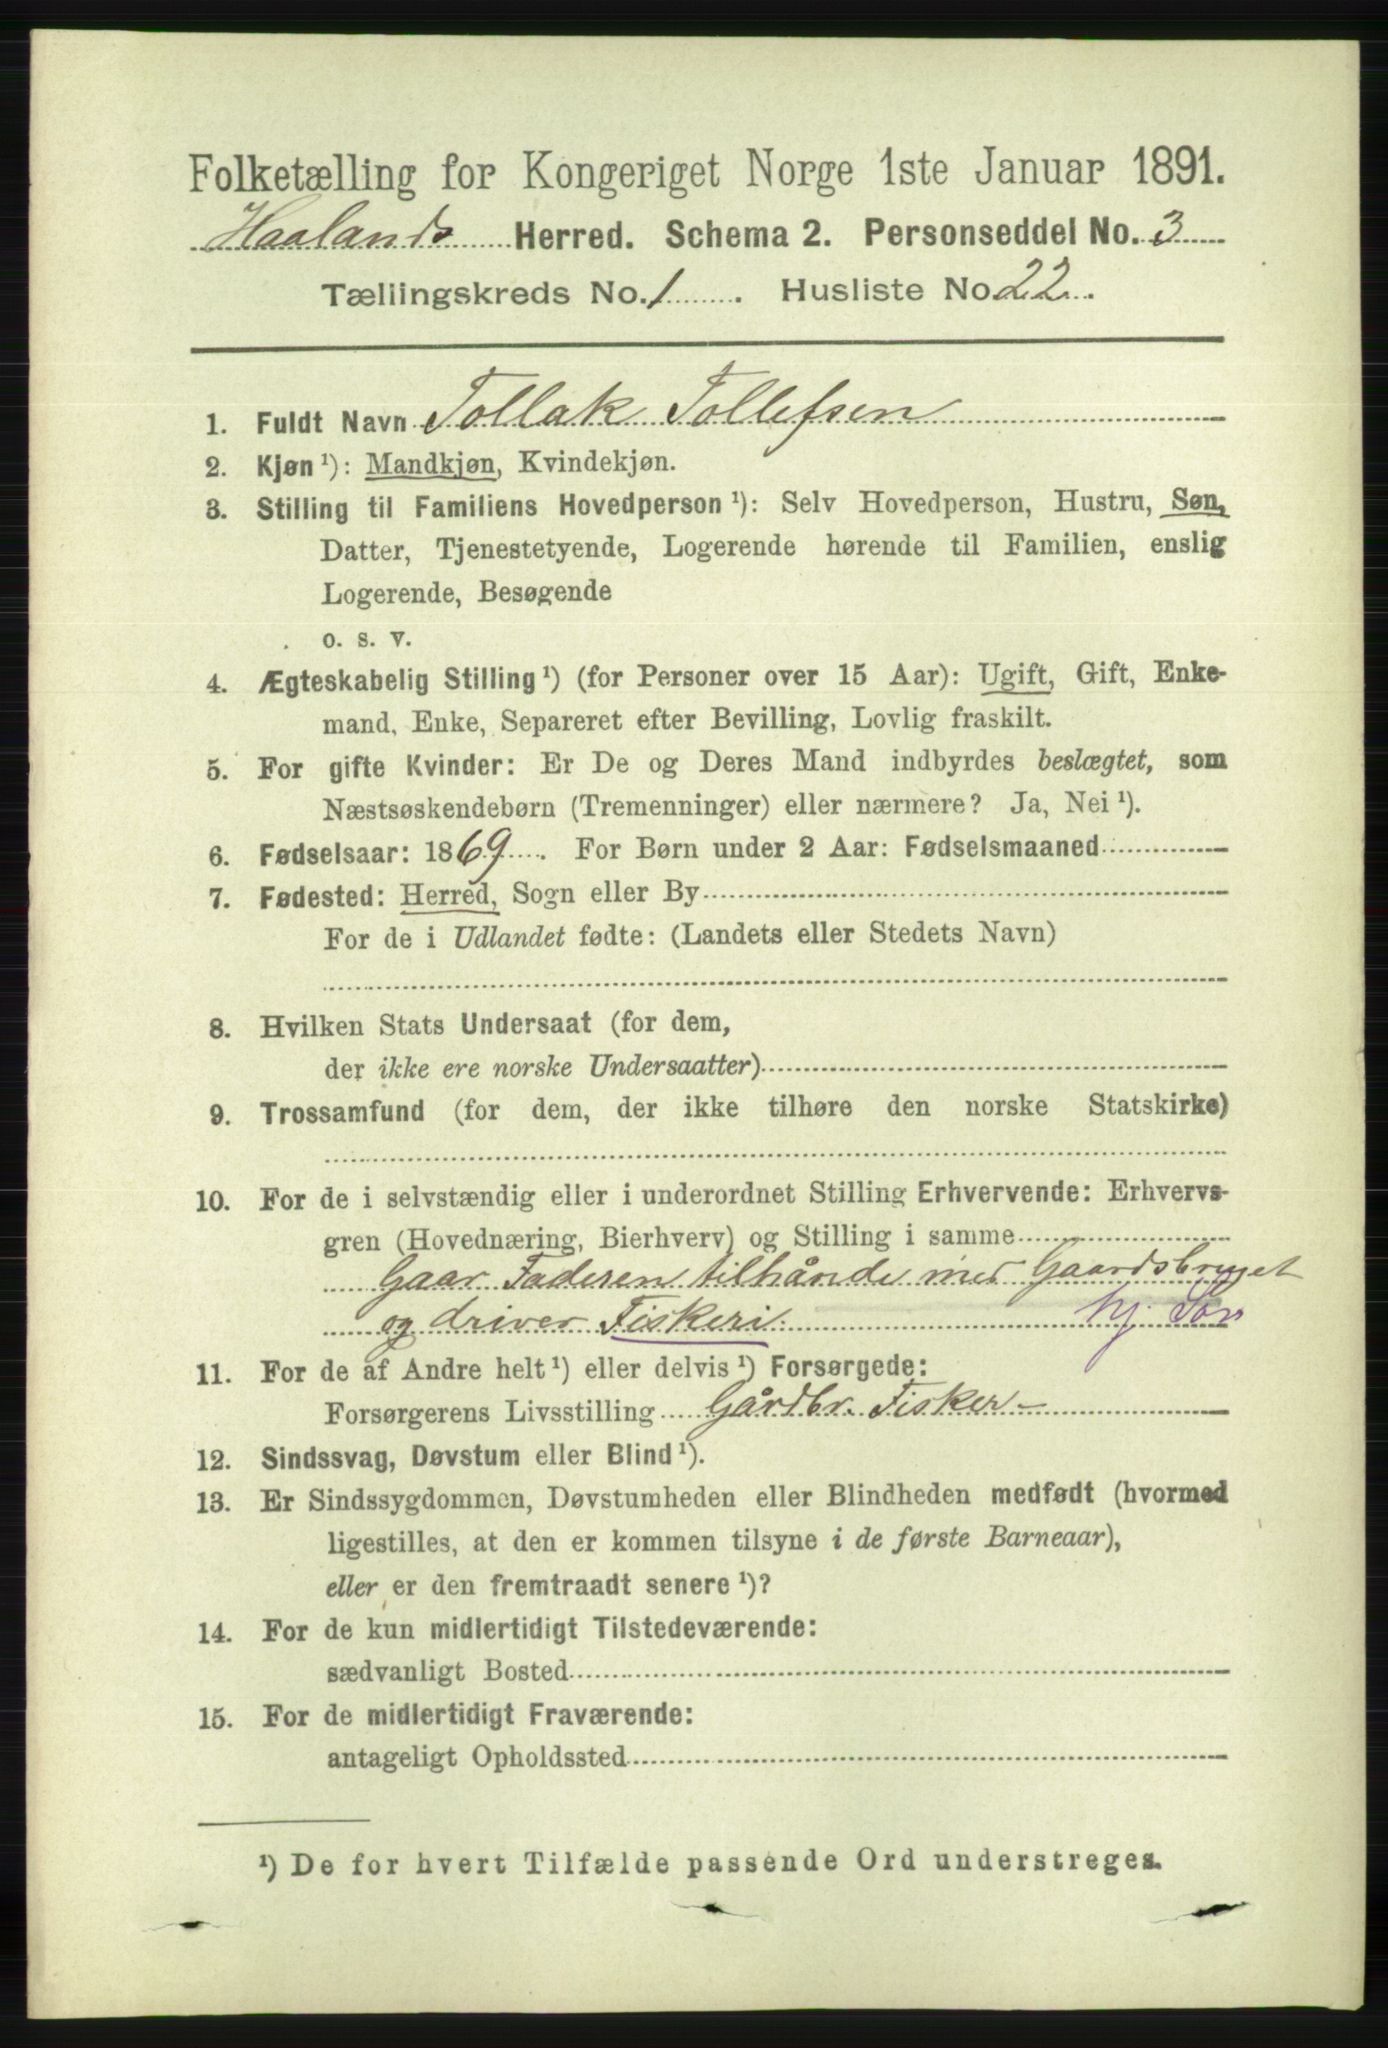 Folketælling for Kongeriget Norge 1ste Januar 1891.
Haalands Herred. Schema 2. Personseddel No. 3
Tællingskreds No. 1. Husliste No 22.
1. Fuldt Navn Tollak Tollefsen
2. Kjøn ¹): Mandkjøn, Kvindekjøn.
3. Stilling til Familiens Hovedperson ¹): Selv Hovedperson, Hustru, Søn,
Datter, Tjenestetyende, Logerende hørende til Familien, enslig
Logerende, Besøgende
o. s. v.
4. Ægteskabelig Stilling ¹) (for Personer over 15 Aar): Ugift, Gift, Enke-
mand, Enke, Separeret efter Bevilling, Lovlig fraskilt.
5. For gifte Kvinder: Er De og Deres Mand indbyrdes beslægtet, som
Næstsøskendebørn (Tremenninger) eller nærmere? Ja, Nei ¹).
6. Fødselsaar: 1869. For Børn under 2 Aar: Fødselsmaaned
7. Fødested: Herred, Sogn eller By
For de i Udlandet fødte: (Landets eller Stedets Navn)
8. Hvilken Stats Undersaat (for dem,
der ikke ere norske Undersaatter)
9. Trossamfund (for dem, der ikke tilhøre den norske Statskirke)
10. For de i selvstændig eller i underordnet Stilling Erhvervende: Erhvervs-
gren (Hovednæring, Bierhverv) og Stilling i samme
Gaar Faderen tilhånde med Gaardsbruget
og driver Fiskeri. hj. Søn
11. For de af Andre helt ¹) eller delvis ¹) Forsørgede:
Forsørgerens Livsstilling Gårdbr. Fisker -
12. Sindssvag, Døvstum eller Blind ¹).
13. Er Sindssygdommen, Døvstumheden eller Blindheden medfødt (hvormed
ligestilles, at den er kommen tilsyne i de første Barneaar),
eller er den fremtraadt senere ¹)?
14. For de kun midlertidigt Tilstedeværende:
sædvanligt Bosted
15. For de midlertidigt Fraværende:
antageligt Opholdssted
¹) De for hvert Tilfælde passende Ord understreges.